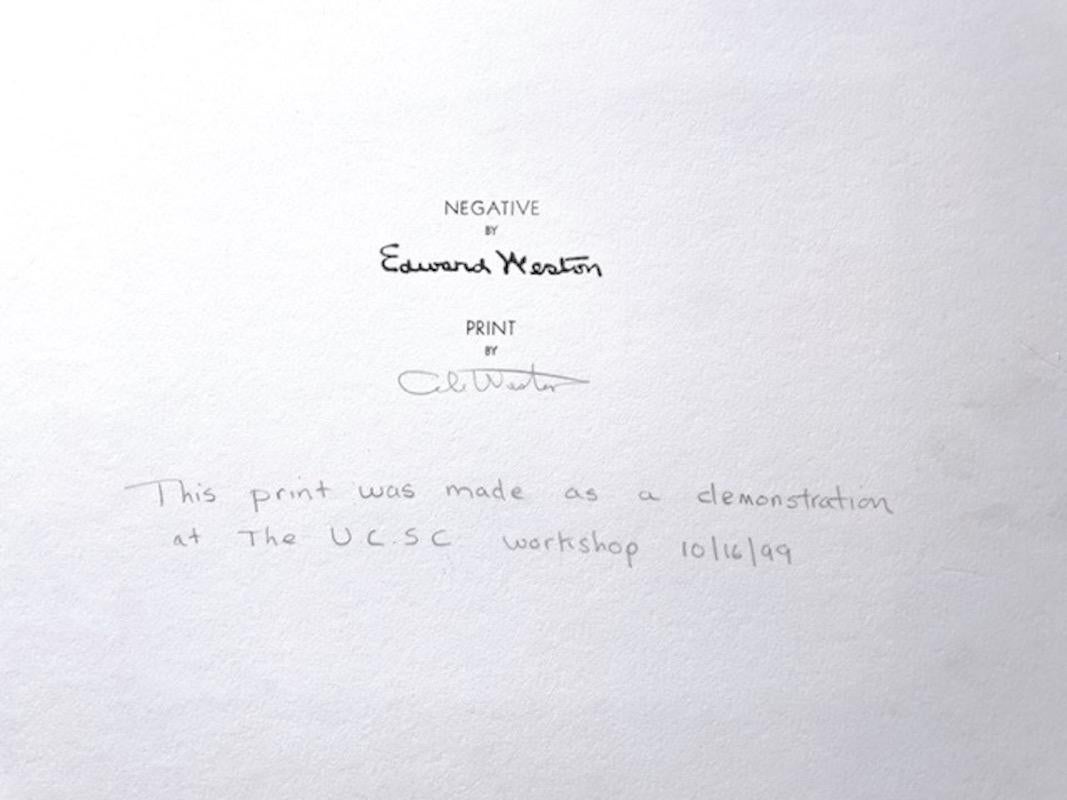 NEGATIVE
BY
Edward Weston
PRINT
BY
Cole Weston
This print was made as a demonstration
at The U C.S C workshop 10/16/99